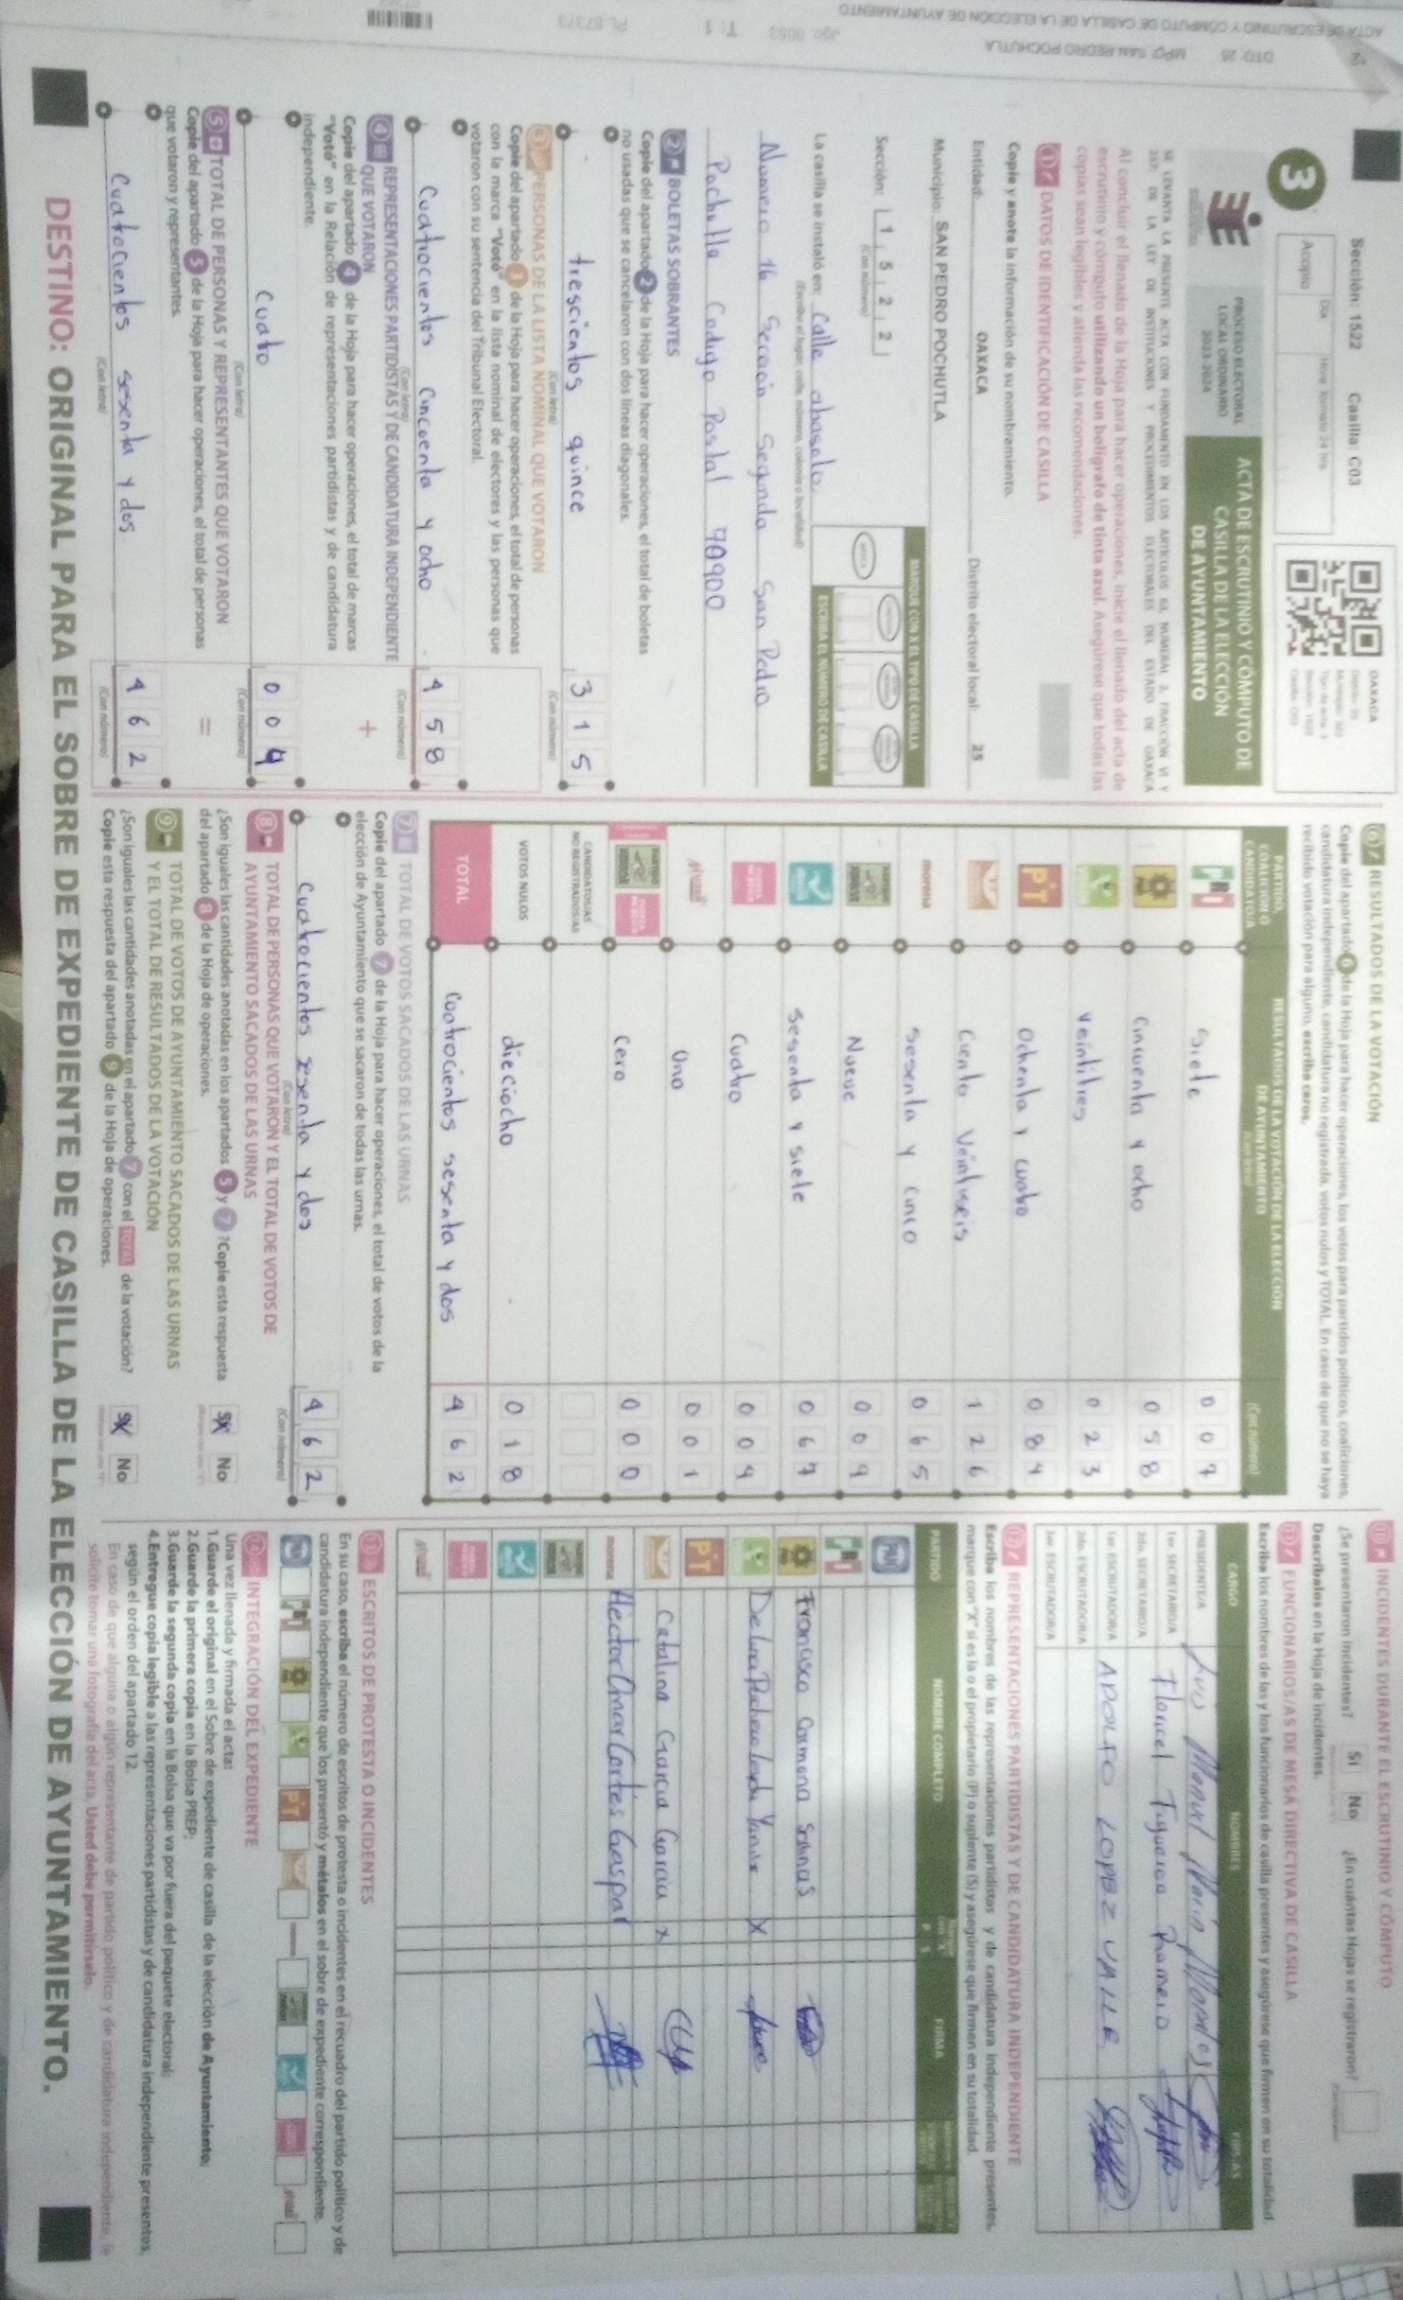 Sección: 1522 Casilla: C03
OAXACA
3
Acopio
Día
PROCESO ELECTORAL
LOCAL ORDINARIO
2023-2024
ACTA DE ESCRUTINIO Y CÓMPUTO DE
CASILLA DE LA ELECCIÓN
DE AYUNTAMIENTO
SE LEVANTA LA PRESENTE ACTA CON FUNDAMENTO EN LOS ARTÍCULOS
DE LA LEY DE INSTITUCIONES Y PROCEDIMIENTOS ELECTORALES DEL ESTADO DE OAXACA
Al concluir el llenado de la Hoja para hacer operaciones, inicie el llenado del acta de
escrutinio y cómputo utilizando un bolígrafo de tinta azul. Asegúrese que todas las
copias sean legibles y atienda las recomendaciones.
1 DATOS DE IDENTIFICACIÓN DE CASILLA
Copie y anote la información de su nombramiento.
Entidad: OAXACA Distrito electoral local: 25
Municipio: SAN PEDRO POCHUTLA
Sección: 1 5 2 2
(Con número)
MARQUE CON X EL TIPO DE CASILLA
ESCRIBA EL NÚMERO DE CASILLA
La casilla se instaló en: Calle abasolo
Numero 16 Sección Segunda San Pedro
Pochutla Codigo Postal 70900
2 BOLETAS SOBRANTES
Copie del apartado 2 de la Hoja para hacer operaciones, el total de boletas
no usadas que se cancelaron con dos líneas diagonales.
trescientos quince 3 1 5
(Con letra) (Con número)
3 PERSONAS DE LA LISTA NOMINAL QUE VOTARON
Copie del apartado de la Hoja para hacer operaciones, el total de personas
con la marca "Votó" en la lista nominal de electores y las personas que
votaron con su sentencia del Tribunal Electoral.
Cuatrocientos Cincuenta y ocho 4 5 8
(Con letra) (Con número)
4 REPRESENTACIONES PARTIDISTAS Y DE CANDIDATURA INDEPENDIENTE
QUE VOTARON
+
Copie del apartado 4 de la Hoja para hacer operaciones, el total de marcas
"Votó" en la Relación de representaciones partidistas y de candidatura
independiente.
Cuatro 0 0 4
(Con letra) (Con número)
5 TOTAL DE PERSONAS Y REPRESENTANTES QUE VOTARON
=
Copie del apartado 5 de la Hoja para hacer operaciones, el total de personas
que votaron y representantes.
Cuatrocientos sesenta y dos 4 6 2
(Con letra) (Con número)
6 RESULTADOS DE LA VOTACIÓN
Copie del apartado 6 de la Hoja para hacer operaciones, los votos para partidos políticos, coaliciones,
candidatura independiente, candidatura no registrada, votos nulos y TOTAL. En caso de que no se haya
recibido votación para alguno, escriba ceros.
PARTIDO, COALICIÓN O CANDIDATO/A
RESULTADOS DE LA VOTACIÓN DE LA ELECCIÓN
DE AYUNTAMIENTO
(Con letra) (Con número)
PRI Siete 0 0 7
PRD Cincuenta y ocho 0 5 8
VERDE Veintitres 0 2 3
PT Ochenta y cuatro 0 8 4
Ciento Veintiseis 1 2 6
morena sesenta y cinco 0 6 5
Nueve 0 0 9
Sesenta y siete 0 6 7
Cuatro 0 0 4
Uno 0 0 1
Cero 0 0 0
CANDIDATOS/AS
NO REGISTRADOS/AS
VOTOS NULOS dieciocho 0 1 8
TOTAL Cuatrocientos sesenta y dos 4 6 2
7 TOTAL DE VOTOS SACADOS DE LAS URNAS
Copie del apartado 7 de la Hoja para hacer operaciones, el total de votos de la
elección de Ayuntamiento que se sacaron de todas las urnas.
Cuatrocientos sesenta y dos 4 6 2
(Con letra) (Con número)
8 TOTAL DE PERSONAS QUE VOTARON Y EL TOTAL DE VOTOS DE
AYUNTAMIENTO SACADOS DE LAS URNAS
¿Son iguales las cantidades anotadas en los apartados 5 y 7? Copie esta respuesta
del apartado 8 de la Hoja de operaciones.
SÍ No
9 TOTAL DE VOTOS DE AYUNTAMIENTO SACADOS DE LAS URNAS
Y EL TOTAL DE RESULTADOS DE LA VOTACIÓN
¿Son iguales las cantidades anotadas en el apartado 7 con el TOTAL de la votación?
Copie esta respuesta del apartado 9 de la Hoja de operaciones.
SÍ No
10 INCIDENTES DURANTE EL ESCRUTINIO Y CÓMPUTO
¿Se presentaron incidentes? Sí No ¿En cuántas Hojas se registraron?
Descríbalos en la Hoja de incidentes.
11 FUNCIONARIOS/AS DE MESA DIRECTIVA DE CASILLA
Escriba los nombres de las y los funcionarios de casilla presentes y asegúrese que firmen en su totalidad.
CARGO NOMBRES FIRMAS
PRESIDENTE/A Luis Manuel Marin
1er. SECRETARIO/A Floricel Figueroa
2do. SECRETARIO/A
1er. ESCRUTADOR/A ADOLFO LOPEZ VALLE
2do. ESCRUTADOR/A
3er. ESCRUTADOR/A
12 REPRESENTACIONES PARTIDISTAS Y DE CANDIDATURA INDEPENDIENTE
Escriba los nombres de las representaciones partidistas y de candidatura independiente presentes,
marque con "X" si es la o el propietario (P) o suplente (S) y asegúrese que firmen en su totalidad.
PARTIDO NOMBRE COMPLETO P S FIRMA
PAN
PRI
PRD Francisco Carmona Salinas
VERDE
PT
Catalina Garcia Garcia x
morena Hector Omar Cortés Gaspar
13 ESCRITOS DE PROTESTA O INCIDENTES
En su caso, escriba el número de escritos de protesta o incidentes en el recuadro del partido político y de
candidatura independiente que los presentó y métalos en el sobre de expediente correspondiente.
14 INTEGRACIÓN DEL EXPEDIENTE
Una vez llenada y firmada el acta:
1.Guarde el original en el Sobre de expediente de casilla de la elección de Ayuntamiento;
2.Guarde la primera copia en la Bolsa PREP;
3.Guarde la segunda copia en la Bolsa que va por fuera del paquete electoral;
4.Entregue copia legible a las representaciones partidistas y de candidatura independiente presentes,
según el orden del apartado 12.
En caso de que alguna o algún representante de partido político y de candidatura independiente, le
solicite tomar una fotografía del acta, Usted debe permitírselo.
DESTINO: ORIGINAL PARA EL SOBRE DE EXPEDIENTE DE CASILLA DE LA ELECCIÓN DE AYUNTAMIENTO.
ACTA DE ESCRUTINIO Y CÓMPUTO DE CASILLA DE LA ELECCIÓN DE AYUNTAMIENTO
DTO: 25 MPO: SAN PEDRO POCHUTLA